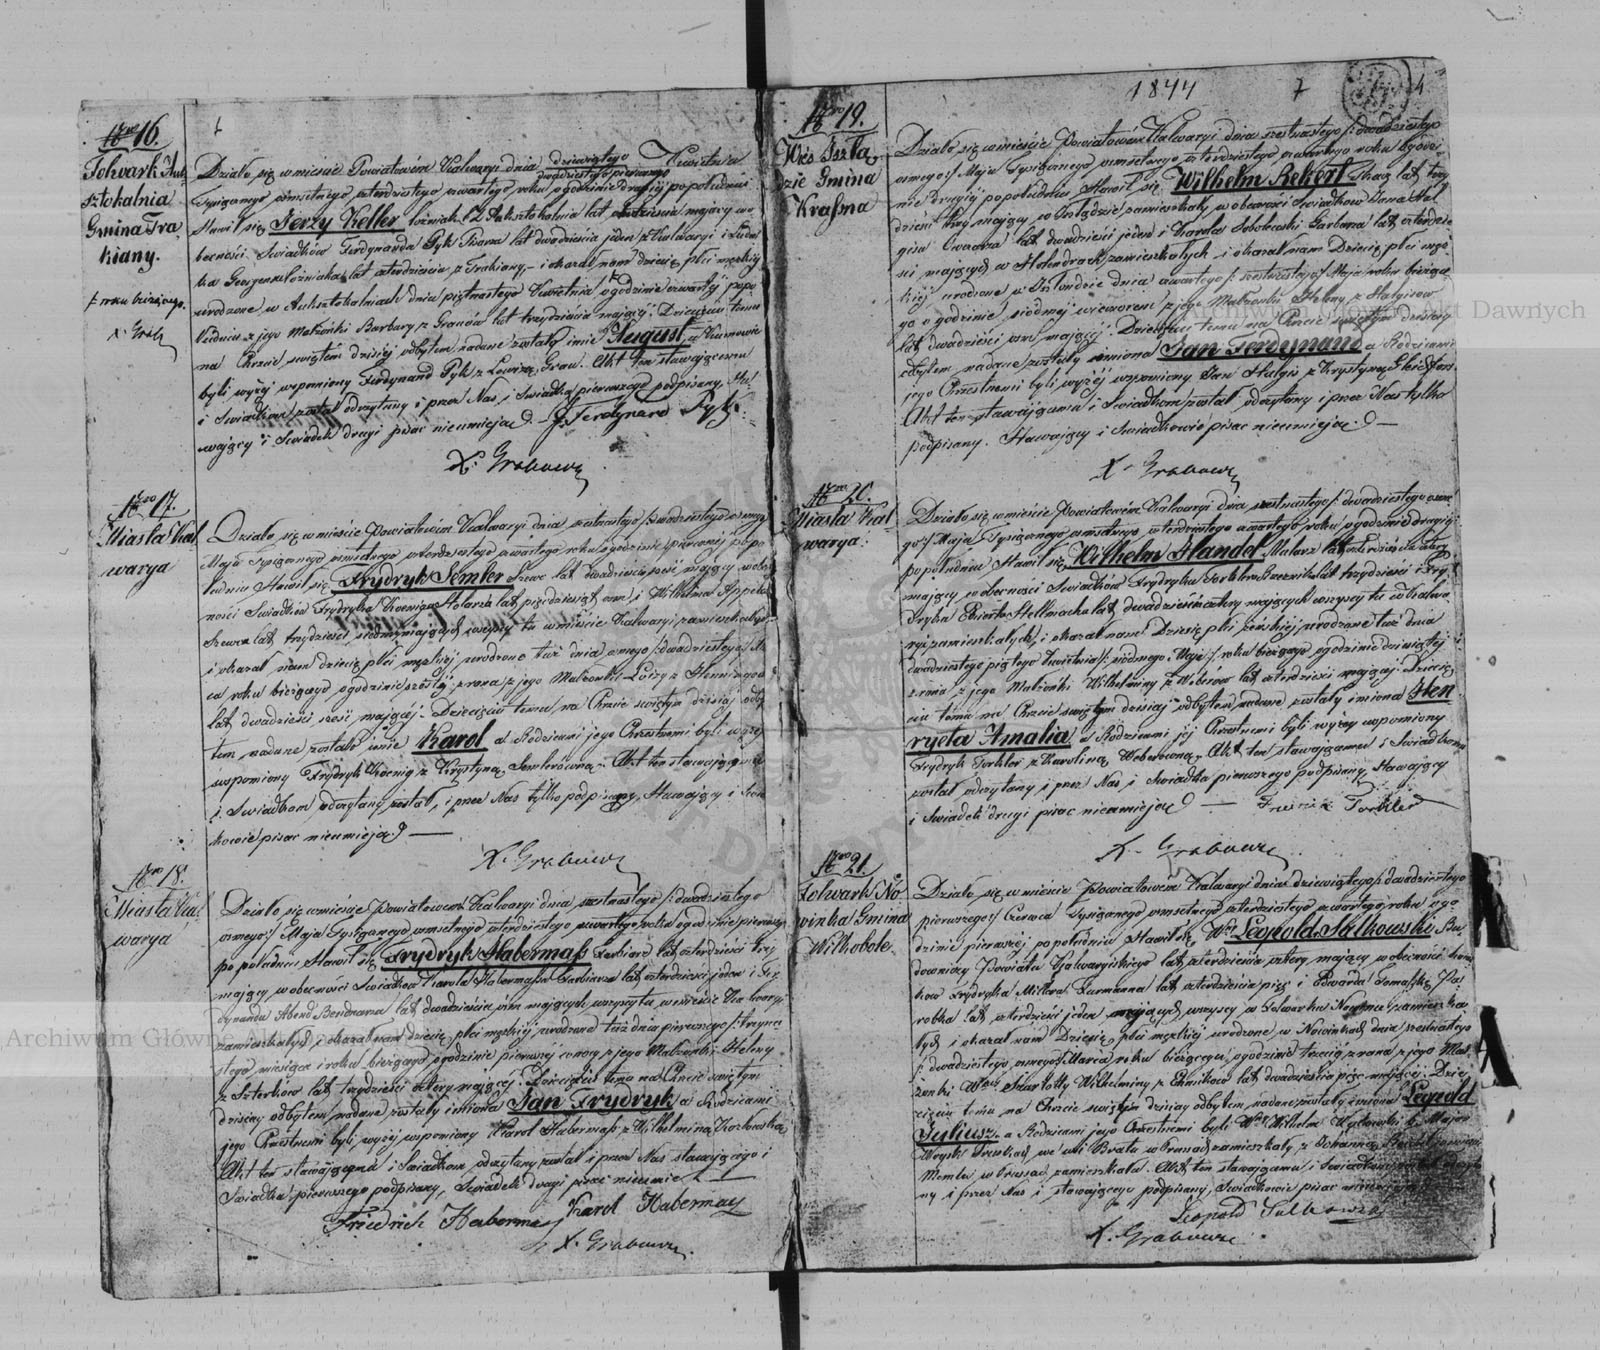 1844 7 4
Nro 16.
Folwark Auk
sztokalnia
Gmina Tra
kiany.
z roku bieżącego.
X. Grab
Działo się w mieście Powiatowém Kalwaryi dnia dziewiątego Kwietnia
dwudziestego pierwszego
Tysiącznego ośmsetnego czterdziestego czwartego roku o godzinie drugiéj po południu
Stawił się Jerzy Keller lat mający w o
becności Świadków Ferdynanda Pyk Pisarza lat dwadzieścia jeden z Kalwaryi i Ludwi
ka lat czterdzieści z Trakiany, i okazał nam dziecię płci męzkiéj
urodzone w Auksztokalniach dnia piętnastego Kwietnia o godzinie czwartéj popo
łudniu z jego Małżonki Barbary z Graców lat trzydzieści mającéj. Dziecięciu temu
na Chrzcie świętém dzisiéj odbytém nadane zostały imie August, a Kumowie
byli wyżéj wspomniony Ferdynand Pyk z Lowizą Grau. Akt ten stawającemu
i Świadkom został odczytany i przez Nas i Świadka pierwszego podpisany. Sta
wający i Świadek drugi pisać nieumieją. Ferdynand Pyk.
X. Grabows
Nro 17.
Miasta Kal
warya
Działo się w mieście Powiatowém Kalwaryi dnia szesnastego /: dwudziestego ósmego
Maja Tysiącznego ośmsetnego czterdziestego czwartego roku o godzinie pierwszéj popo
łudniu Stawił się Frydryk Semler Szewc lat dwadzieścia sześć mający w obec
ności Świadków Frydryka Koeniga Stolarza lat pięćdziesiąt ośm i Wilhelma Appela
Szewca lat trzydzieści siedm mających wszyscy tu w mieście Kalwaryi zamieszkałych
i okazał nam dziecię płci męzkiéj urodzone tuż dnia ósmego /: dwudziestego :/ Ma
ca roku bieżącego o godzinie szóstéj z rana z jego Małżonki Luizy z Henningów
lat dwadzieścia sześć mającéj. Dziecięciu temu na Chrzcie świętym dzisiaj odby
tem nadane zostało imie Karol a Rodzicami jego Chrzestnemi byli wyżéj
wspomniony Frydryk Koenig z Krystyną Semlerówną. Akt ten stawającemu
i Świadkom odczytany został, i przez Nas tylko podpisany, Stawający i Świad
kowie pisać nieumieją.
X. Grabows
Nro 18.
Miasta Kal
warya
Działo się w mieście Powiatowém Kalwaryi dnia szesnastego /: dwudziestego
ósmego :/ Maja Tysiącznego ośmsetnego czterdziestego czwartego roku o godzinie pierwszéj
po południu Stawił się Frydryk Habermaß Farbiarz lat czterdzieści trzy
mający w obecności Świadków Karola Habermaßa Farbiarza lat czterdzieści jeden i Fer
dynanda Abend Bednarza lat dwadzieścia ośm mających, wszyscy tu w mieście Kalwaryi
zamieszkałych i okazał nam dziecię płci męzkiéj urodzone tuż dnia pierwszego /: trzyna
stego miesiąca i roku bieżącego o godzinie pierwszéj w nocy z jego Małżonki Heleny
z Szterków lat trzydzieści cztery mającéj. Dziecięciu temu na Chrzcie świętym
dzisiaj odbytem nadane zostały imiona Jan Frydryk a Rodzicami
jego Chrzestnemi byli wyżéj wspomniony Karol Habermaß z Wilhelminą Kozłowską
Akt ten stawającemu i Świadkom odczytany został i przez Nas stawającego i
Świadka pierwszego podpisany, Świadek drugi pisać nieumie
Friedrich Habermas Karol Habermas
X. Grabows
Nro 19.
Wieś Iszlą
dzie Gmina
Kraßna
Działo się w mieście Powiatowém Kalwaryi dnia szesnastego /: dwudziestego
ósmego :/ Maja Tysiącznego ośmsetnego czterdziestego czwartego roku o godzi
nie drugiéj po południu Stawił się Wilhelm Rekert Tkacz lat trzy
dzieści trzy mający w Iszlądzie zamieszkały w obecności Świadków Jana Hel
gisa Owczarza lat dwadzieści jeden i Karola Sobolewski Garbarza lat czterdzie
ści mających w zamieszkałych i okazał nam Dziecię płci męz
kiéj urodzone w Iszlondzie dnia czwartego /: szesnastego :/ Maja roku bieżące
go o godzinie siódméj wieczorem z jego Małżonki Heleny z Halgisów
lat dwadzieści ośm mającéj. Dziecięciu temu na Chrzcie świętym dzisiéj
odbytem nadane zostały imiona Jan Ferdynand a Rodzicami
jego Chrzestnemi byli wyżéj wspomniony Jan Halgis z Krystyną
Akt ten stawającemu i Świadkom został odczytany i przez Nas tylko
podpisany. Stawający i Świadkowie pisać nieumieją.
X. Grabows
Nro 20.
Miasta Kal
warya.
Działo się w mieście Powiatowém Kalwaryi dnia szesnastego /: dwudziestego ósme
go :/ Maja Tysiącznego ośmsetnego czterdziestego czwartego roku o godzinie drugiéj
po południu Stawił się Wilhelm Handel Malarz lat
mający w obecności Świadków Frydryka Torkler lat trzydzieści i Fry
dryka Hellwacha lat dwadzieścia cztery mających wszyscy tu w Kalwa
ryi zamieszkałych, i okazał nam Dziecię płci żeńskiéj urodzone tuż dnia
dwudziestego piątego Kwietnia /: siódmego Maja :/ roku bieżącego o godzinie dziewiątéj
z rana z jego Małżonki Wilhelminy z Weberów lat czterdzieści mającéj. Dziecię
ciu temu na Chrzcie świętym dzisiaj odbytem nadane zostały imiona Hen
ryeta Amalia a Rodzicami jéj Chrzestnemi byli wyżéj wspomniony
Frydryk Torkler z Karoliną Weberówną. Akt ten stawającemu i Świadkom
został odczytany i przez Nas i Świadka pierwszego podpisany, Stawający
i Świadek drugi pisać nieumieją. Torkler
X. Grabows
Nro 21.
Folwark No
winka Gmina
Wilkobole.
Działo się w mieście Powiatowém Kalwaryi dnia dziewiątego /: dwudziestego
pierwszego :/ Czerwca Tysiącznego ośmsetnego czterdziestego czwartego roku o go
dzinie pierwszéj po południu Stawił się Wy Leopold Sulkowski Bu
downiczy Powiatu Kalwaryiskiego lat czterdzieście cztery mający w obecności Świad
ków Frydryka Millera Furmanna lat czterdzieścia pięć i Edwarda Pa
robka lat czterdzieści jeden mających wszyscy w Folwarku Nowince zamieszka
łych i okazał nam Dziecię płci męzkiéj urodzone w Nowinkach dnia szesnastego
/: dwudziestego ósmego :/ Marca roku bieżącego o godzinie trzeciéj z rana z jego Mał
żonki Wéj Szarlotty Wilhelminy z lat dwadzieścia pięć mającéj. Dzie
cięciu temu na Chrzcie świętym dzisiaj odbytem nadane zostały imiona Leopold
Juliusz a Rodzicami jego Chrzestnemi byli Wy Wilhelm Major
Woysk Pruskich we wsi zamieszkały, z Johanną
w Prussach zamieszkała. Akt ten stawającemu i Świadkom został odczyta
ny i przez Nas i stawającego podpisany, Świadkowie pisać nieumieją
Leopold Sulkowski
X. Grabows
Archiwum Główne Akt Dawnych
Archiwum Główne Akt Dawnych